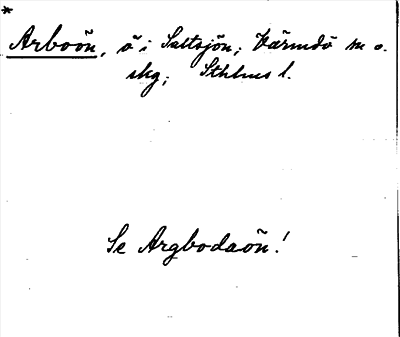 *
Arboön, ö i Saltsjön; Värmdö m o.
skg; Sthlms l.
Se Argbodaön!